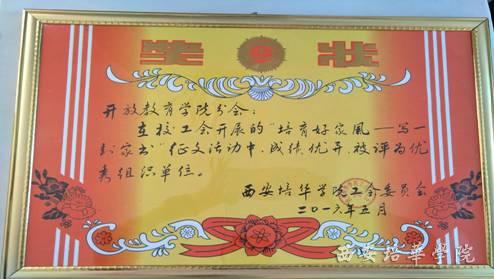 奖状
开放教育学院分会：
在校工会开展的“培育好家风——写一
封家书”征文活动中，成绩优异，被评为优
秀组织单位。
西安培华学院工会委员会
二〇一六年五月
西安培华学院